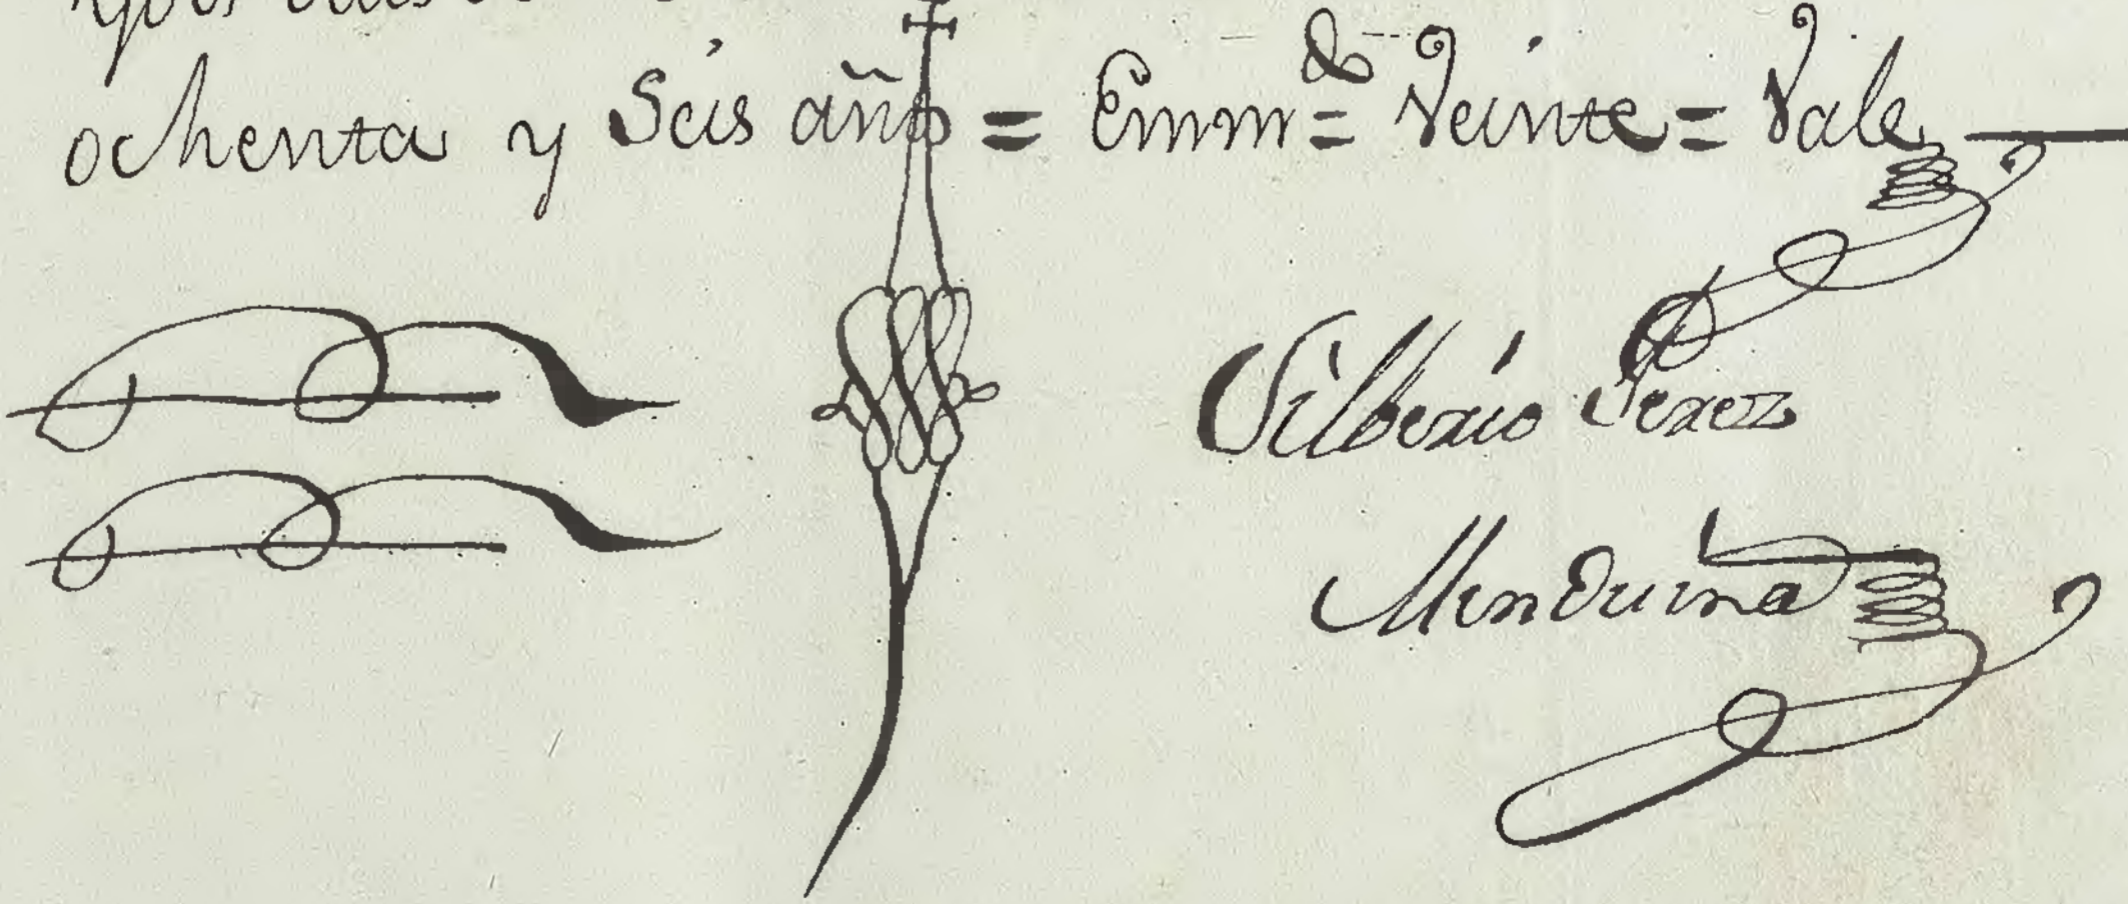 ochenta y Seis años = Emm.do = Veinte = Vale
Silberio Perez
Menduina